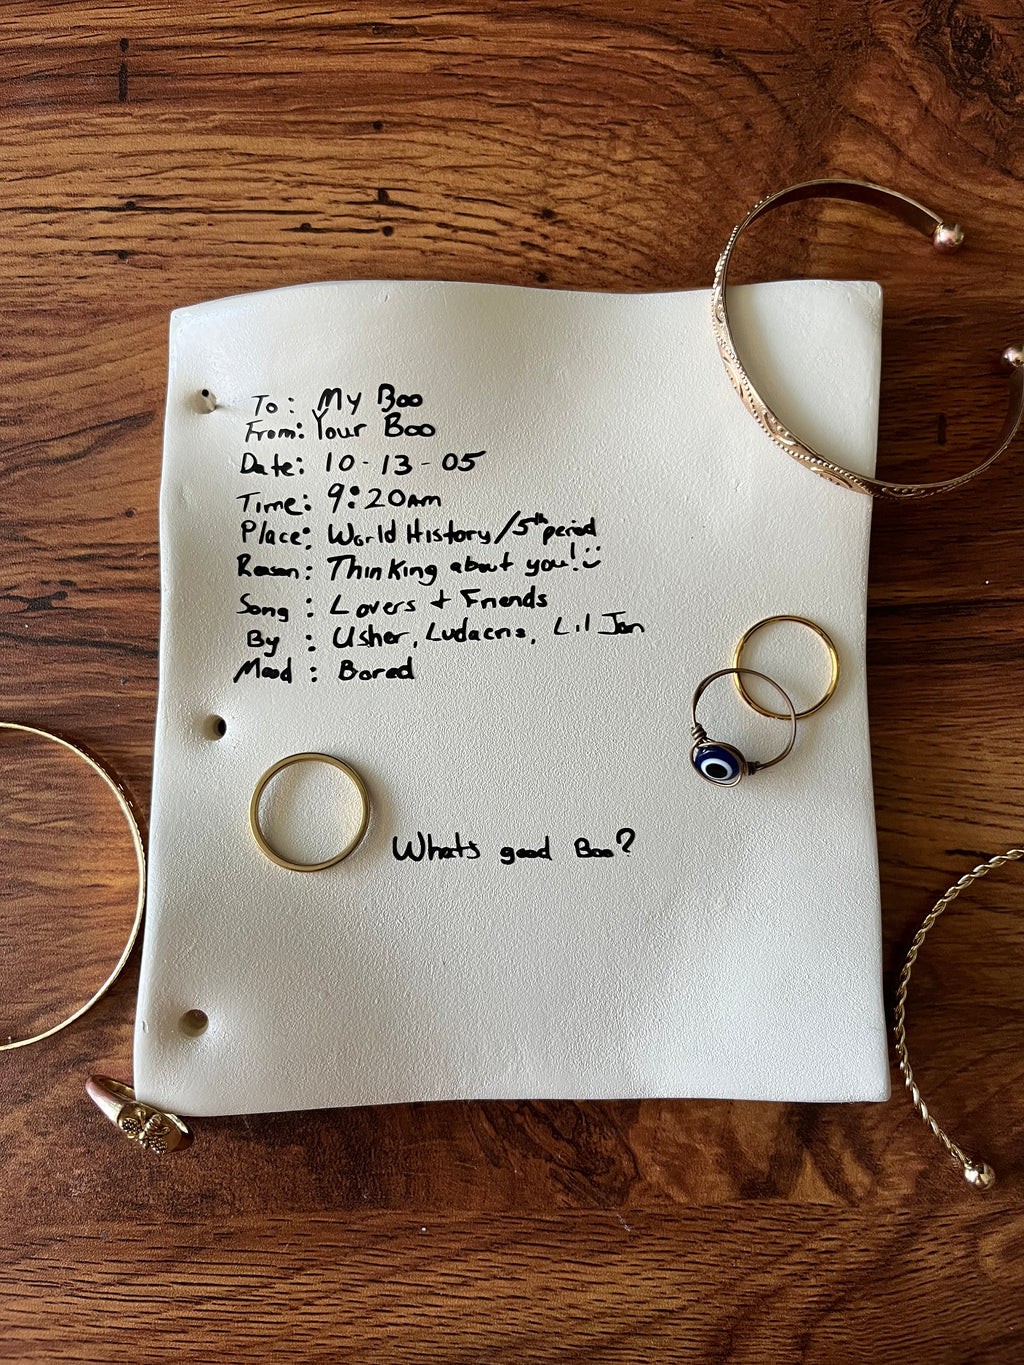 To: My Boo
From: Your Boo
Date: 10-13-05
Time: 9:20AM
Place: World History/5th period
Reason: Thinking about you! :)
Song: Lovers + Friends
By: Usher, Ludacris, Lil Jon
Mood: Bored
Whats good Boo?